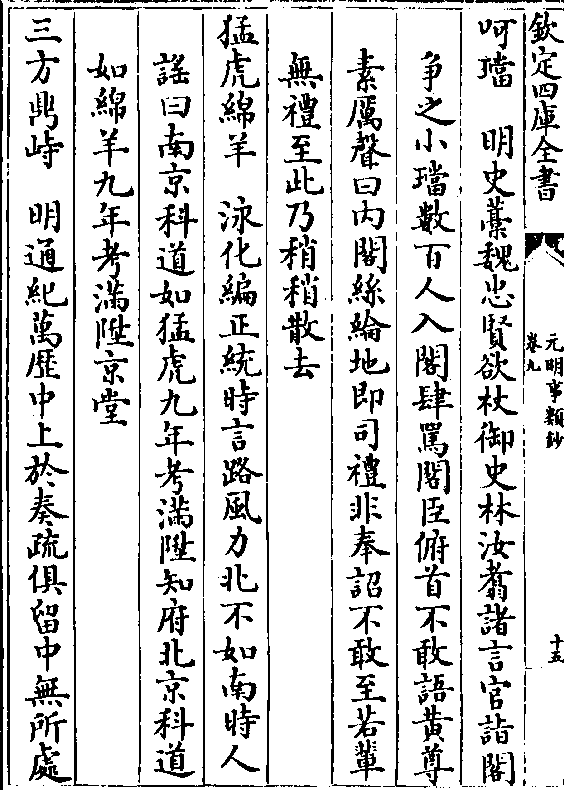 欽定四庫全書
元明事類鈔
卷九
十五
呵璫　明史藁魏忠賢欲杖御史林汝翥諸言官詣閣
争之小璫數百人入閣肆罵閣臣俯首不敢語黄尊
素厲聲曰内閣絲綸地即司禮非奉詔不敢至若輩
無禮至此乃稍稍散去
猛虎綿羊　泳化編正統時言路風力北不如南時人
謡曰南京科道如猛虎九年考滿陞知府北京科道
如綿羊九年考滿陞京堂
三方鼎峙　明通紀萬歴中上於奏疏俱留中無所處